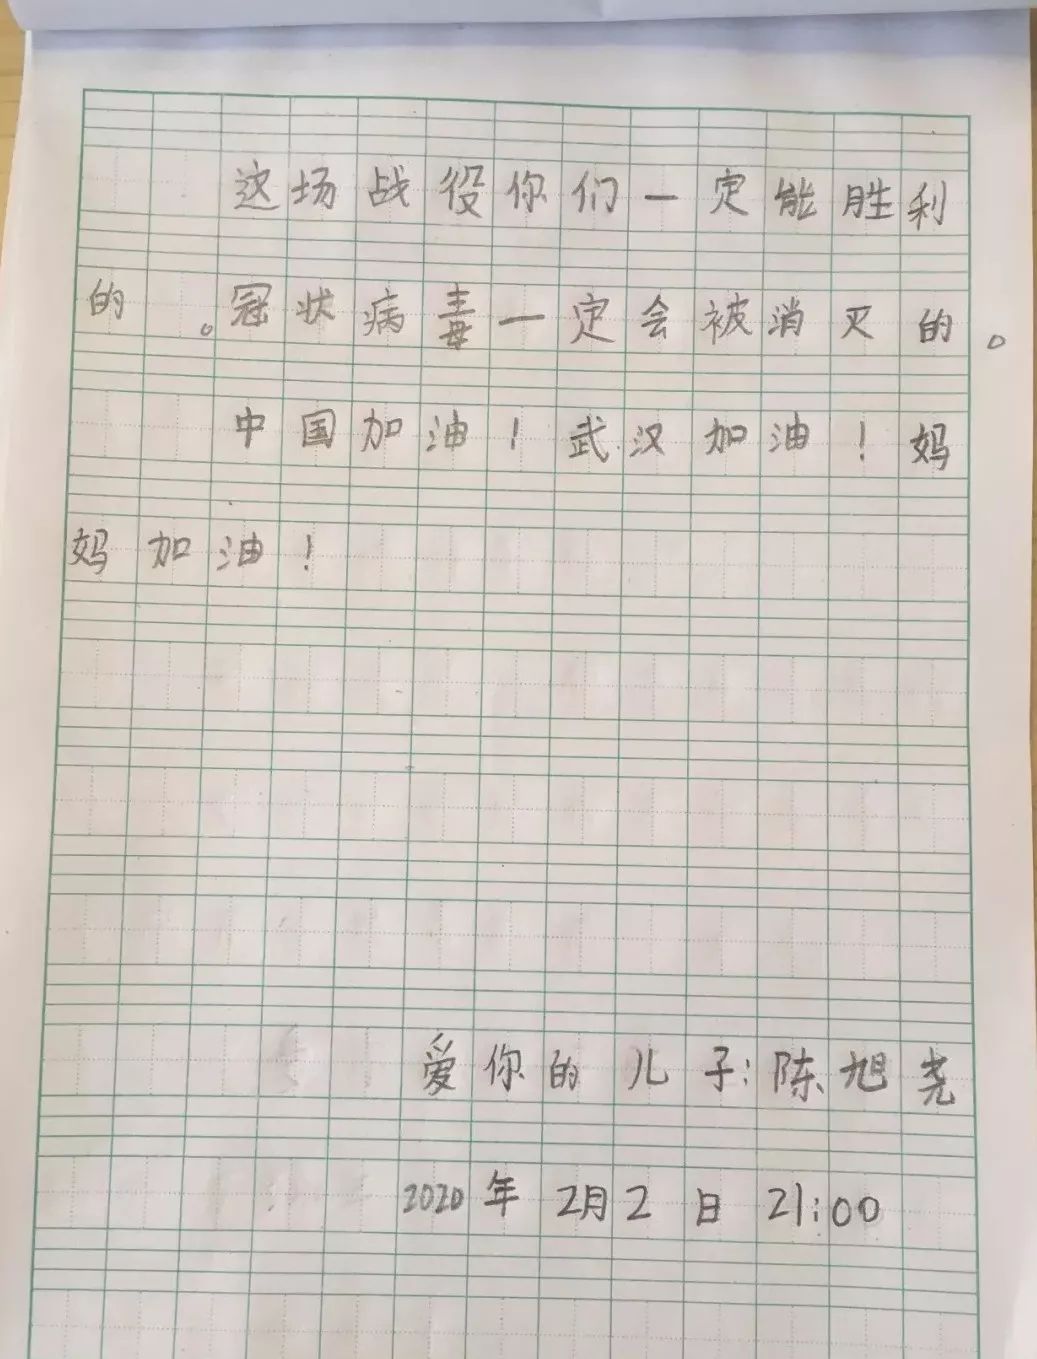 这场战役你们一定能胜利
的。冠状病毒一定会被消灭的。
中国加油！武汉加油！妈
妈加油！
爱你的儿子:陈旭尧
2020年2月2日21:00